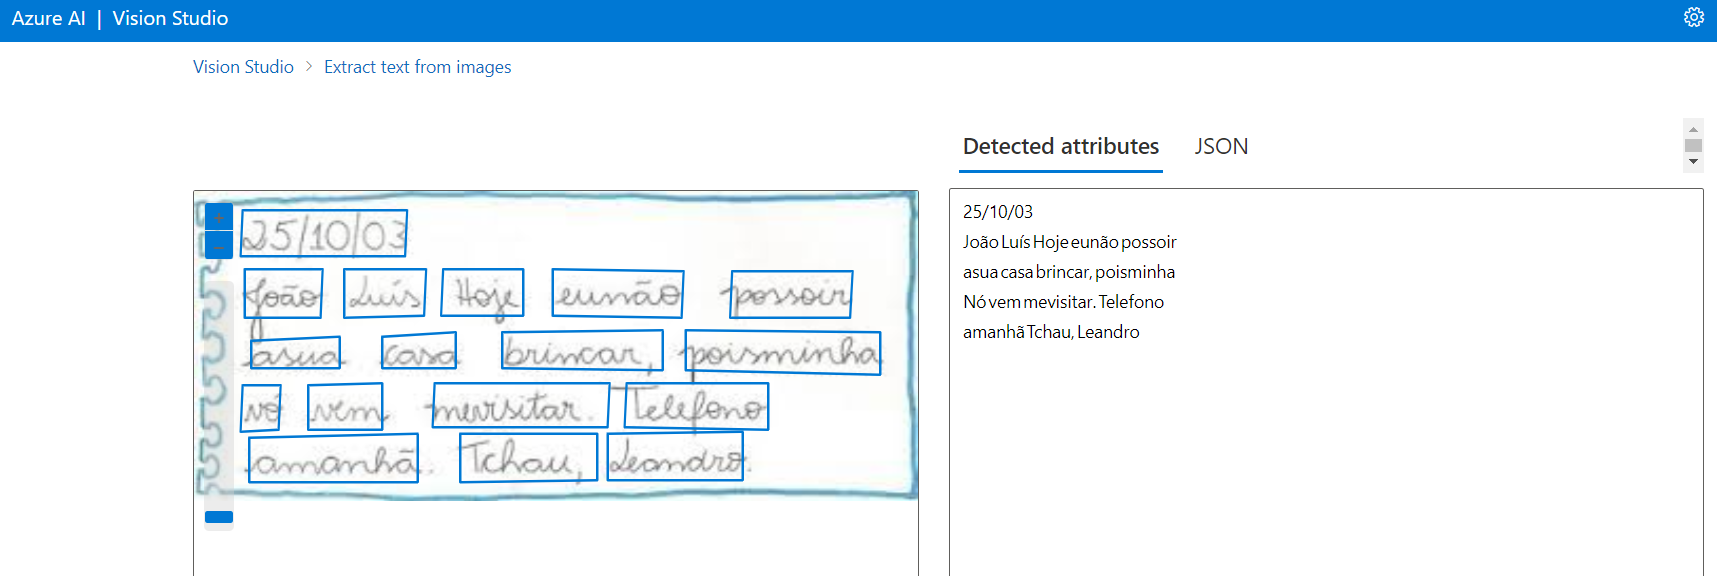 Azure AI | Vision Studio
Vision Studio > Extract text from images
Detected attributes JSON
25/10/03
João Luís Hoje eunão possoir
asua casa brincar, poisminha
vó vem mevisitar. Telefono
amanhã. Tchau, Leandro.
25/10/03
João Luís Hoje eunão possoir
asua casa brincar, poisminha
Nó vem mevisitar. Telefono
amanhã Tchau, Leandro